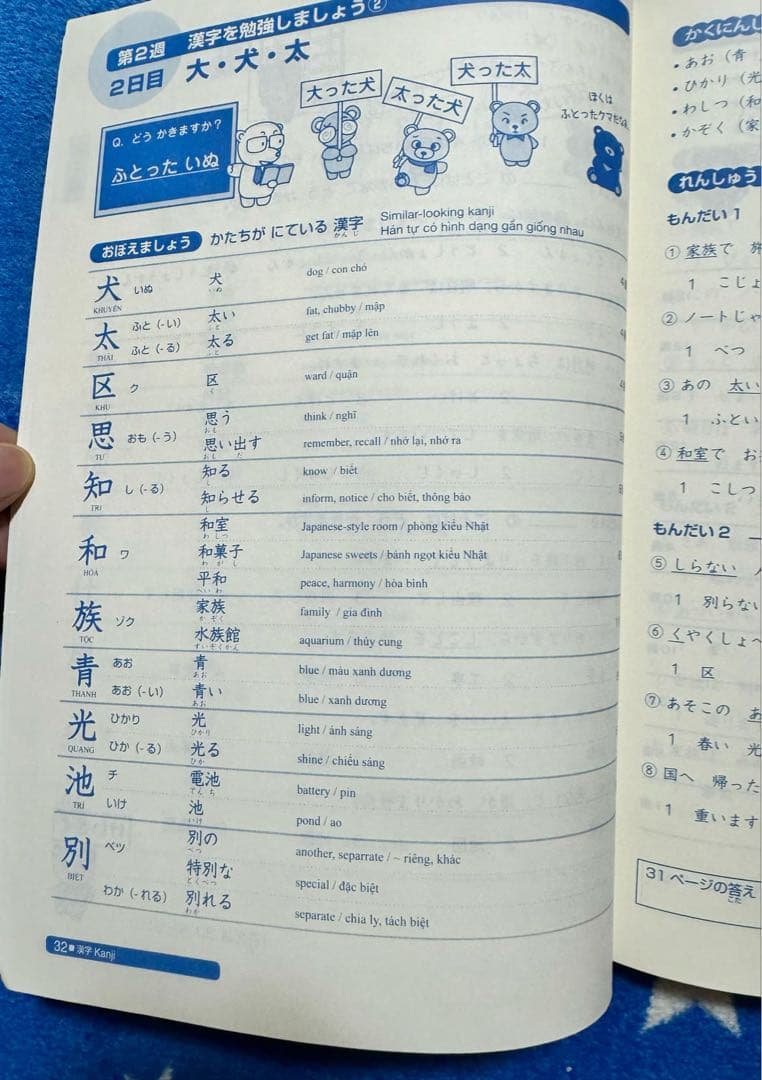 第2週 漢字を勉強しましょう②
2日目 大・犬・太
Q. どう かきますか?
ふとった いぬ
大った犬
太った犬
犬った太
ぼくは
ふとったクマだなぁ
おぼえましょう かたちが にている 漢字
かんじ
Similar-looking kanji
Hán tự có hình dạng gần giống nhau
犬 いぬ 犬 dog / con chó
KHUYỂN いぬ
太 ふと (-い) 太い fat, chubby / mập
ふと
THÁI ふと (-る) 太る get fat / mập lên
ふと
区 ク 区 ward / quận
KHU く
思 おも (-う) 思う think / nghĩ
おも
TƯ 思い出す remember, recall / nhớ lại, nhớ ra
おも だ
知 し (-る) 知る know / biết
し
TRI 知らせる inform, notice / cho biết, thông báo
し
和 ワ 和室 Japanese-style room / phòng kiểu Nhật
わ しつ
HÒA 和菓子 Japanese sweets / bánh ngọt kiểu Nhật
わ が し
平和 peace, harmony / hòa bình
へい わ
族 ゾク 家族 family / gia đình
か ぞく
TỘC 水族館 aquarium / thủy cung
すいぞくかん
青 あお 青 blue / màu xanh dương
あお
THANH あお (-い) 青い blue / xanh dương
あお
光 ひかり 光 light / ánh sáng
ひかり
QUANG ひか (-る) 光る shine / chiếu sáng
ひか
池 チ 電池 battery / pin
でん ち
TRÌ いけ 池 pond / ao
いけ
別 ベツ 別の another, separrate / ~ riêng, khác
べつ
BIỆT 特別な special / đặc biệt
とくべつ
わか (-れる) 別れる separate / chia ly, tách biệt
わか
32 漢字 Kanji
かくにんし
・あお (青
・ひかり (光
・わしつ (和
・かぞく (家
れんしゅう
もんだい 1
① 家族で 旅
1 こじょ
② ノートじゃ
1 べつ
③ あの 太い
1 ふとい
④ 和室で お
1 こしつ
もんだい 2
⑤ しらない
1 別らない
⑥ くやくしょへ
1 区
⑦ あそこの あ
1 春い 光
⑧ 国へ 帰った
1 重います
31 ページの答え
こた